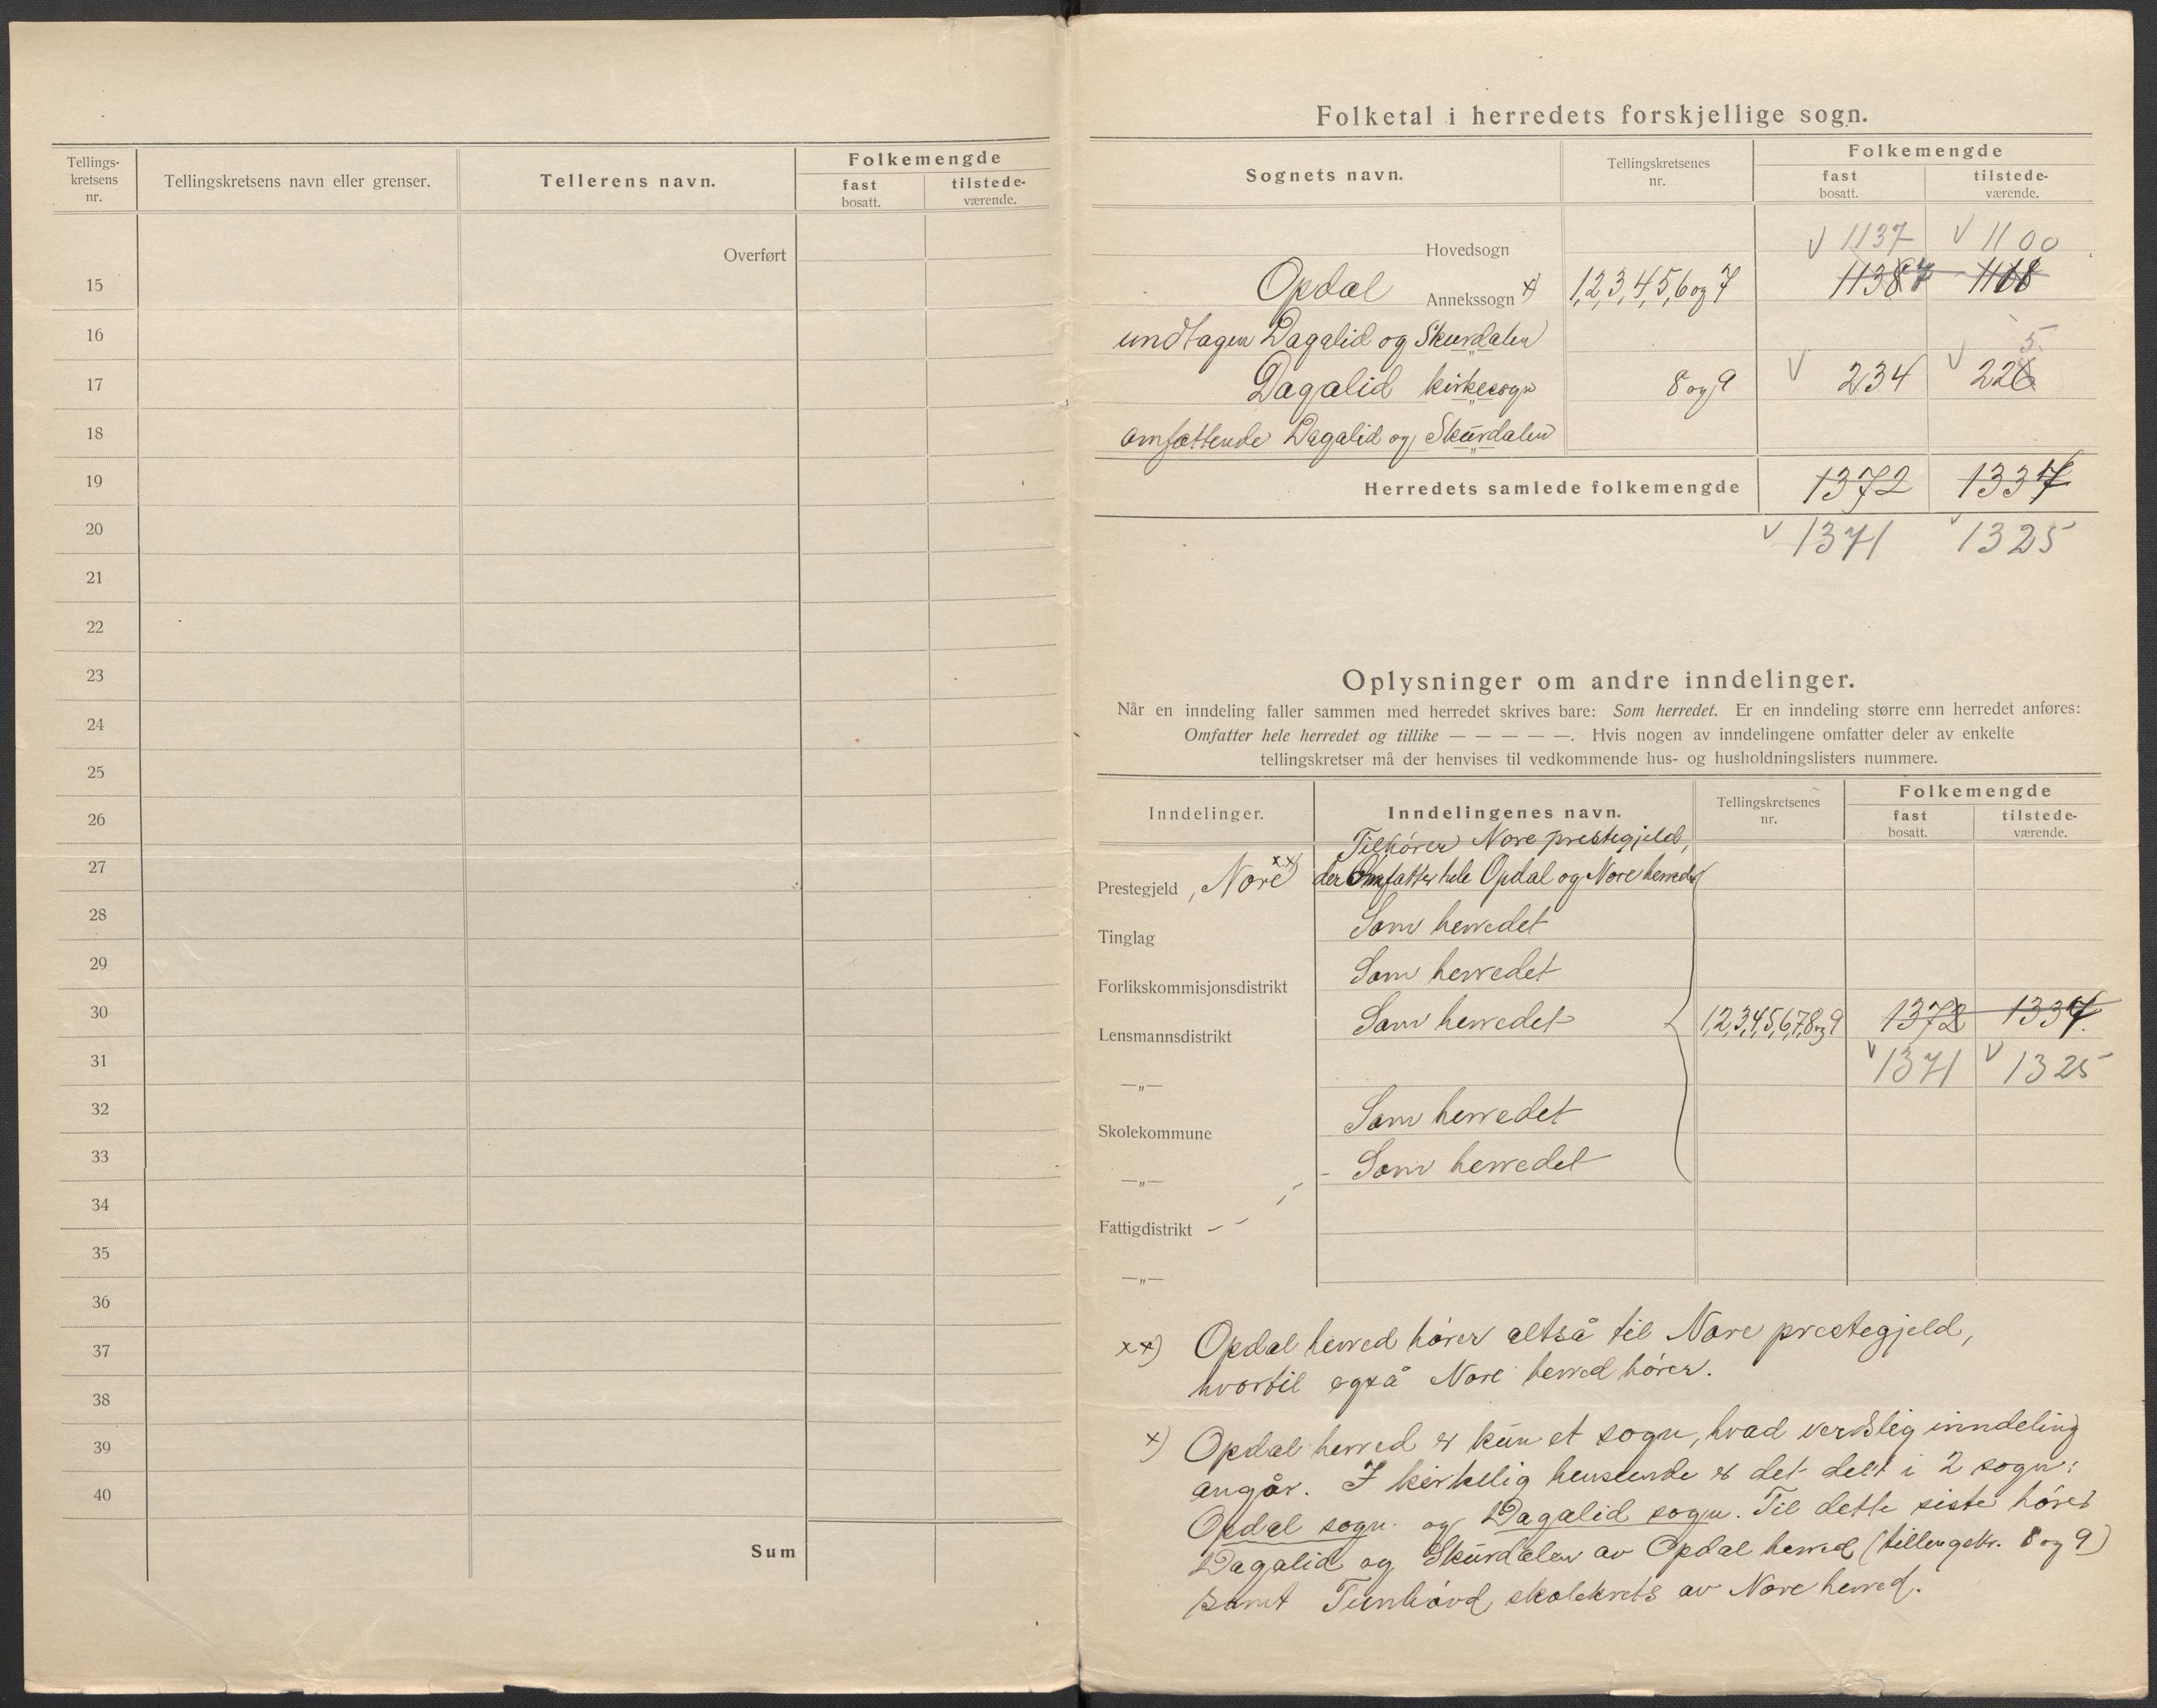 Tellings-
kretsens
nr.
Tellingskretsens navn eller grenser.
Tellerens navn.
Folkemengde
fast
bosatt.
tilstede-
værende.
Overført
15
16
17
18
19
20
21
22
23
24
25
26
27
28
29
30
31
32
33
34
35
36
37
38
39
40
Sum
Folketal i herredets forskjellige sogn.
Sognets navn.
Tellingskretsenes
nr.
Folkemengde
fast
bosatt.
tilstede-
værende.
Hovedsogn
v 1137 v 1100
Opdal Annekssogn x) 1,2,3,4,5,6 og 7 1138 7 1118
undtagen Dagalid og Skurdalen
5.
Dagalid kirkesogn 8 og 9 v 234 v 226
omfattende Dagalid og Skurdalen
Herredets samlede folkemengde 1372 1334
v 1371 v 1325
Oplysninger om andre inndelinger.
Når en inndeling faller sammen med herredet skrives bare: Som herredet. Er en inndeling større enn herredet anføres:
Omfatter hele herredet og tillike — — — — —. Hvis nogen av inndelingene omfatter deler av enkelte
tellingskretser må der henvises til vedkommende hus- og husholdningslisters nummere.
Inndelinger.
Inndelingenes navn.
Tellingskretsenes
nr.
Folkemengde
fast
bosatt.
tilstede-
værende.
Tilhører Nore prestegjeld,
Prestegjeld, Nore xx) der Omfatter hele Opdal og Nore herreder
Tinglag Som herredet
Forlikskommisjonsdistrikt Som herredet
Lensmannsdistrikt Som herredet 1,2,3,4,5,6,7,8 og 9 1372 1334
—„— v 1371 v 1325
Skolekommune Som herredet
—„— - Som herredet
Fattigdistrikt - -
—„—
xx) Opdal herred hører altså til Nore prestegjeld,
hvortil også Nore herred hører.
x) Opdal herred er kun et sogn, hvad verdslig inndeling
angår. I kirkelig henseende er det delt i 2 sogn:
Opdal sogn og Dagalid sogn. Til dette siste hører
Dagalid og Skurdalen av Opdal herred (tellingskr. 8 og 9)
samt Tunhovd skolekrets av Nore herred.